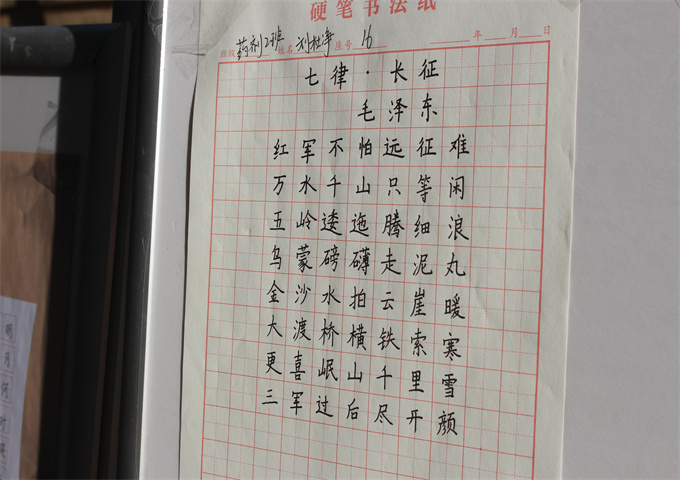 硬笔书法纸
班级 药剂2班 姓名 座号 16 年 月 日
七律·长征
毛泽东
红军不怕远征难
万水千山只等闲
五岭逶迤腾细浪
乌蒙磅礴走泥丸
金沙水拍云崖暖
大渡桥横铁索寒
更喜岷山千里雪
三军过后尽开颜
明月何时